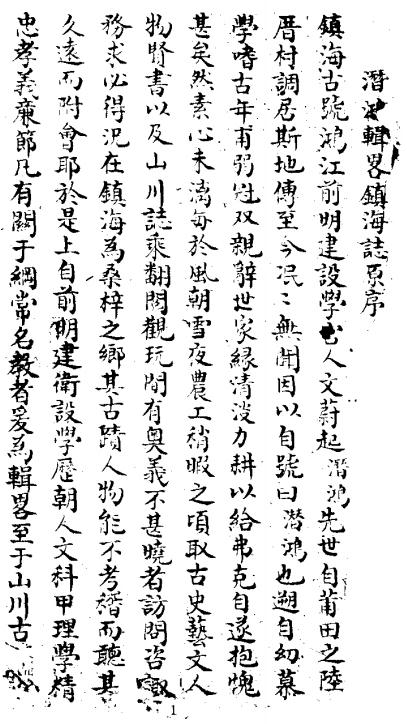 潛鴻輯畧鎮海誌原序
鎮海古號鴻江前明建設學宮人文蔚起潛鴻先世自莆田之陸
厝村調居斯地傳至今泯〻無聞因以自號曰潛鴻也遡自幼慕
學嗜古年甫弱冠双親辭世家緣清淡力耕以給弗克自遂抱愧
甚矣然素心未漓每於風朝雪夜農工稍暇之頃取古史藝文人
物賢書以及山川誌乘翻閱觀玩間有奥義不甚曉者訪問咨諏
務求必得況在鎮海為桑梓之鄉其古蹟人物能不考稽而聽其
久遠而附會耶於是上自前明建衛設學歷朝人文科甲理學精
忠孝義廉節凡有關于綱常名教者爰為輯畧至于山川古
1